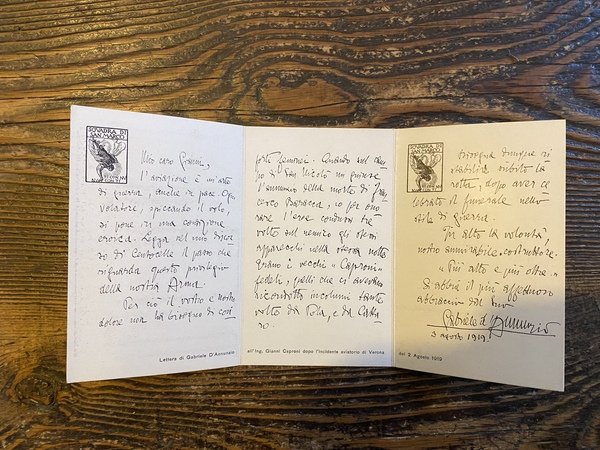 SQUADRA DI
SAN MARCO
Mio caro Gianni,
l'aviazione è un'arte
di guerra, anche in pace. Ogni
volatore, spiccando il volo,
si pone in una condizione
eroica. Legga nel mio discorso
di Centocelle il passo che
riguarda questo privilegio
della nostra Arma.
Per ciò il vostro e nostro
dolore non ha bisogno di
Lettera di Gabriele D'Annunzio
Quando sul campo
di San Nicolò mi giunse
l'annunzio della morte di Francesco
Baracca, io per onorare
l'eroe condussi tre
volte sul nemico gli stessi
apparecchi nella stessa notte.
Erano i vecchi "Caproni"
fedeli, quelli che ci avevano
ricondotti incolumi tante
volte da Pola, e da Cattaro.
all'Ing. Gianni Caproni dopo l'incidente aviatorio di Verona
SQUADRA DI
SAN MARCO
Bisogna dunque ri
stabilire subito la
rotta, dopo aver ce
lebrato il funerale nello
stile di guerra.
In alto la volontà,
nostro ammirabile costruttore.
"Più alto e più oltre."
Si abbia il più affettuoso
abbraccio dal suo
Gabriele d'Annunzio
3 agosto 1919.
del 2 Agosto 1919